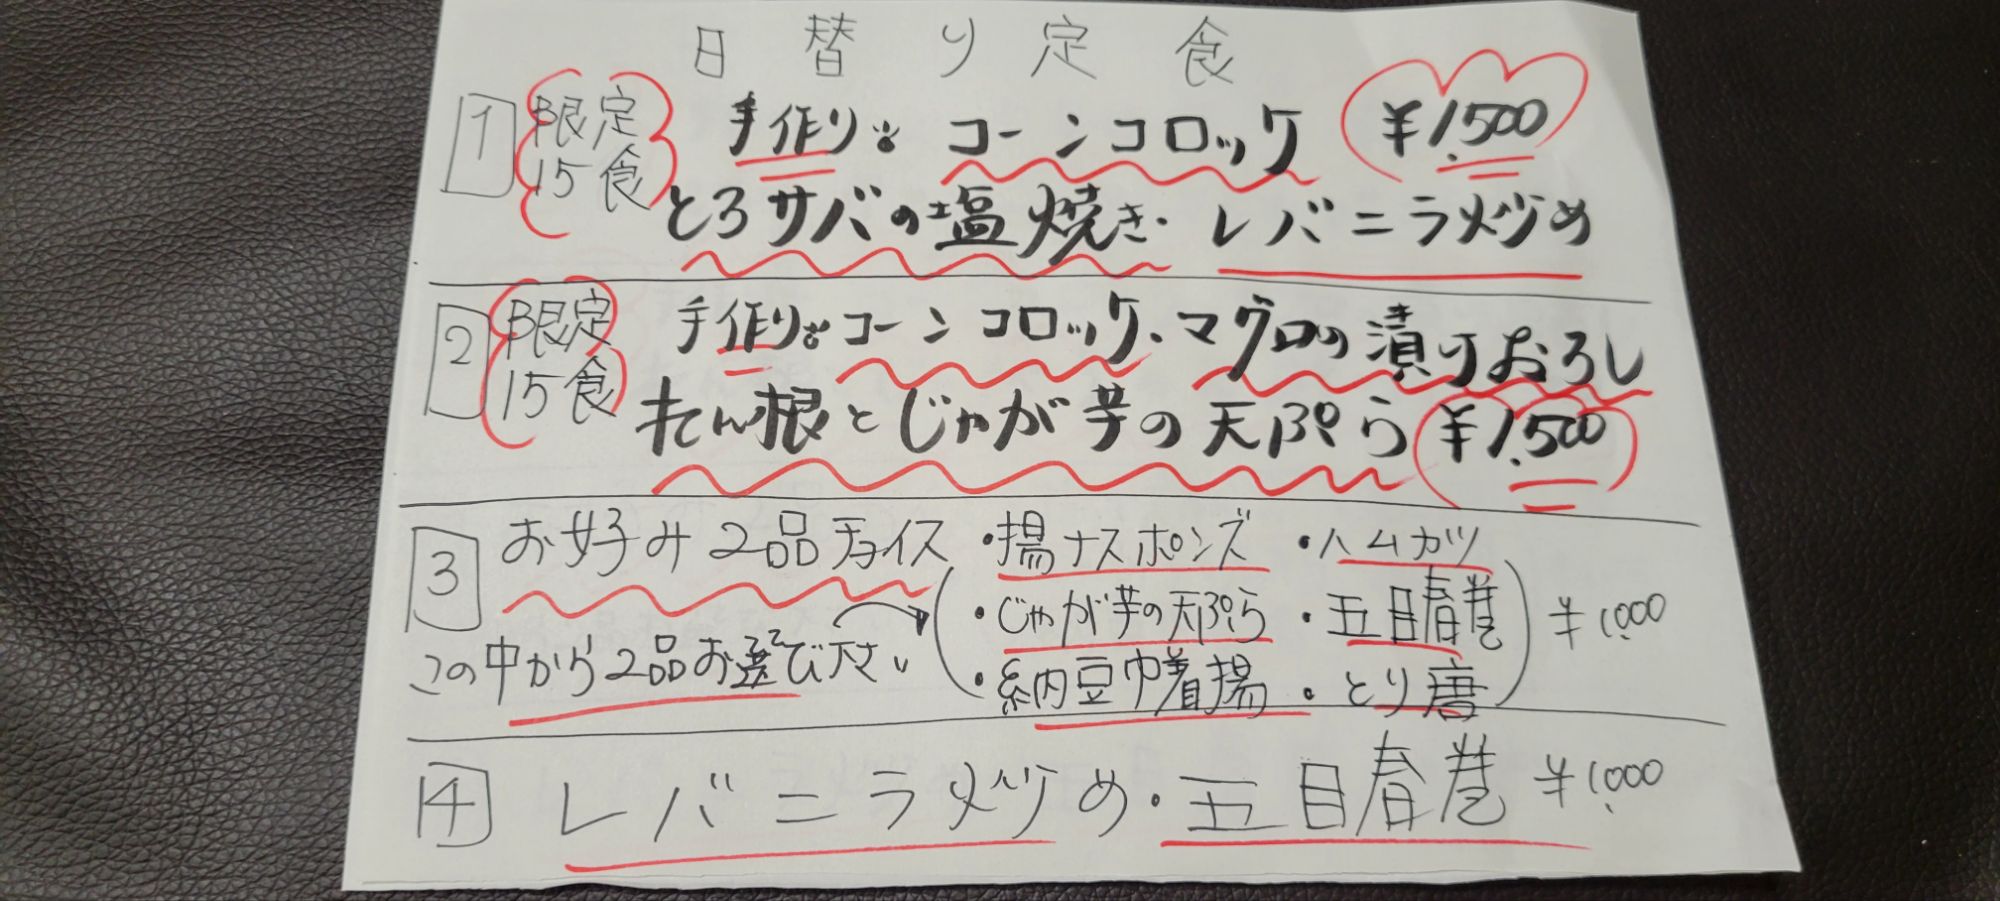 日替り定食
1 限定15食 手作り コーンコロッケ ¥1,500
とろサバの塩焼き・レバニラ炒め
2 限定15食 手作り コーンコロッケ・マグロの漬りおろし
れん根とじゃが芋の天ぷら ¥1,500
3 お好み2品チョイス ・揚ナスポンズ ・ハムカツ
・じゃが芋の天ぷら ・五目春巻 ¥1,000
この中から2品お選び下さい ・納豆巾着揚 ・とり唐
4 レバニラ炒め・五目春巻 ¥1,000